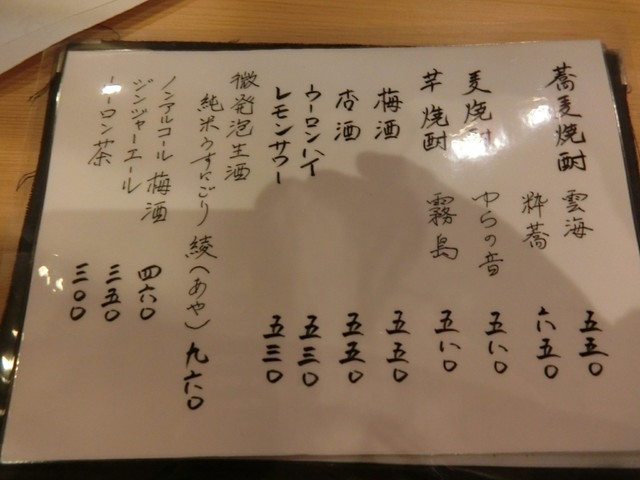 蕎麦焼酎 雲海 五五〇
粋蕎 六五〇
麦焼酎 ゆらの音 五八〇
芋焼酎 霧島 五八〇
梅酒 五五〇
杏酒 五五〇
ウーロンハイ 五三〇
レモンサワー 五三〇
微発泡生酒
純米うすにごり 綾(あや) 九六〇
ノンアルコール 梅酒 四六〇
ジンジャーエール 三五〇
ウーロン茶 三〇〇